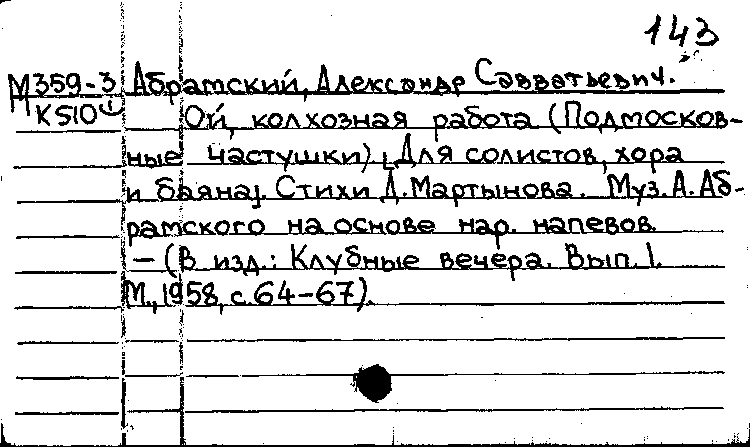 143
М359-3 Абрамский, Александр Савватьевич.
К510 Ой, колхозная работа (Подмосков-
ные частушки) [Для солистов, хора
и баяна]. Стихи Д. Мартынова. Муз. А. Аб-
рамского на основе нар. напевов.
— (В изд.: Клубные вечера. Вып. 1.
М., 1958, с. 64–67).